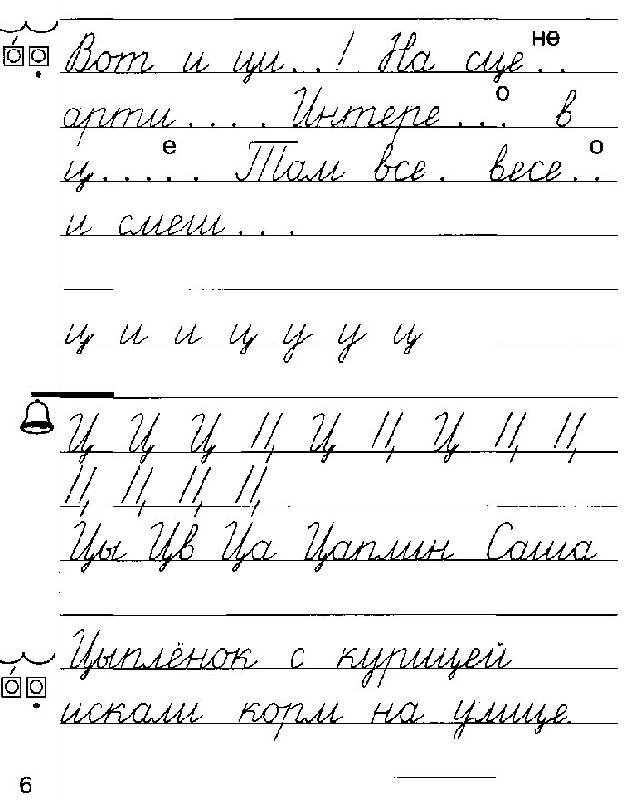 Вот и ци..! На сце но ..
арти.... Интере о ... в
ц е ..... Там все. весе о ..
и смеш...
ц и и ц у у ц
Ц Ц Ц Ц Ц Ц Ц Ц Ц
Ц Ц Ц Ц
Цы Цв Ца Цаплин Саша
Цыплёнок с курицей
искали корм на улице.
6